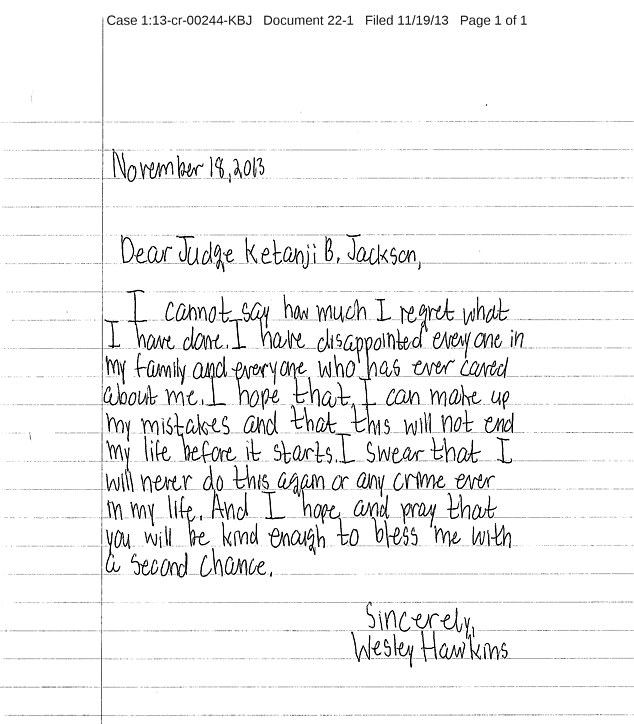 Case 1:13-cr-00244-KBJ Document 22-1 Filed 11/19/13 Page 1 of 1
November 18, 2013
Dear Judge Ketanji B. Jackson,
I cannot say how much I regret what
I have done. I have disappointed everyone in
my family and everyone who has ever cared
about me. I hope that I can make up
my mistakes and that this will not end
my life before it starts. I swear that I
will never do this again or any crime ever
in my life. And I hope and pray that
you will be kind enough to bless me with
a second chance.
Sincerely,
Wesley Hawkins